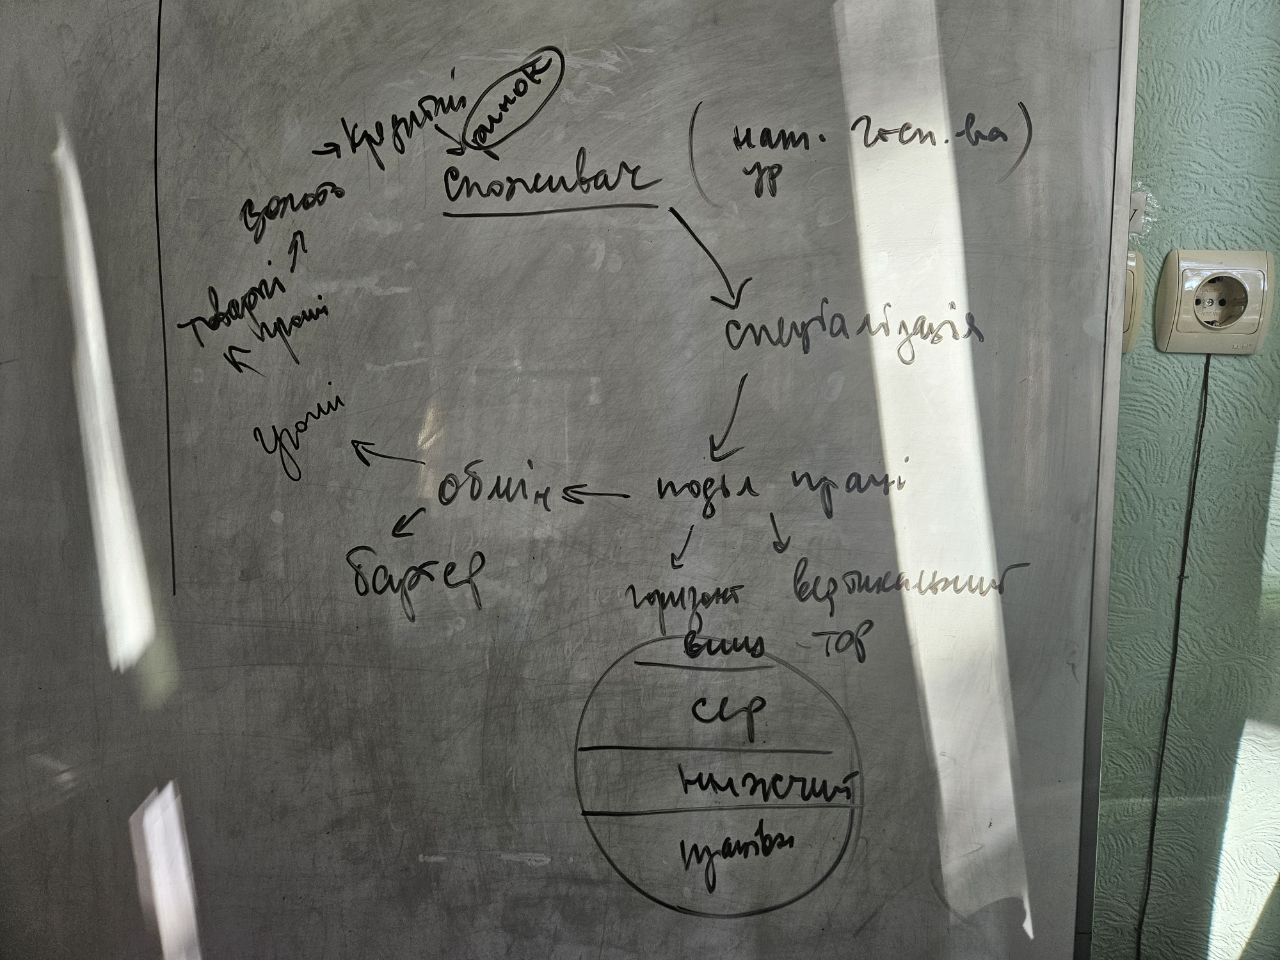 кредитні
ринок
споживач
(нат. госп.-ва)
ур
золото
товарні
гроші
спеціалізація
гроші
обмін
поділ праці
бартер
горизонт
вертикальний
вищ
-тор
сер
нижчий
праців